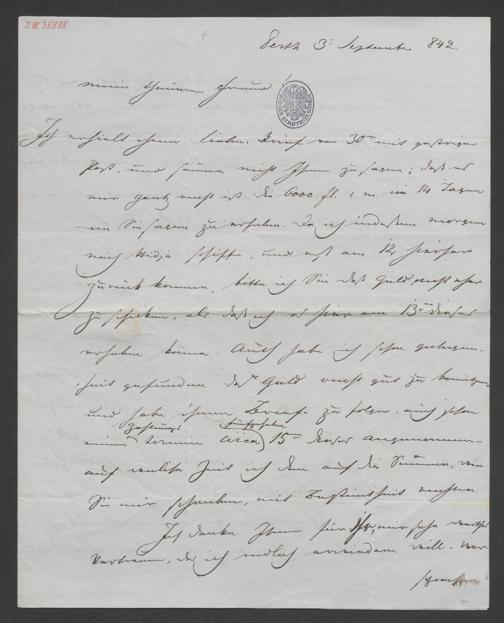 I.N. 35888
Pesth 3 September 842.
mein theurer Freund!
Ich erhielt ihren lieben Brief vom 30 mit gestriger
Post, und säume nicht Ihnen zu sagen, daß es
mir ganz recht ist die 6000 fl. c. m. in 14 Tagen
wie Sie sagen zu erheben. Da ich indessen morgen
nach schiffe, und erst am 12 hierher
zurück komme, bitte ich Sie das Geld nicht eher
zu schicken, als daß ich es hier am 13 dieses
erheben könne. Auch habe ich schon gelegen-
heit gefunden das Geld recht gut zu benützen,
und habe ihrem Briefe zu folge, auch schon
Zahlungs
einen termin circa 15 dieses angenommen
auf welche Zeit ich dann auf die Summe, wie
Sie mir schreiben, mit Bestimtheit rechne.
Ich danke Ihnen für Ihr mir sehr werthes
Vertrauen, das ich redlich erwiedern will. Wir